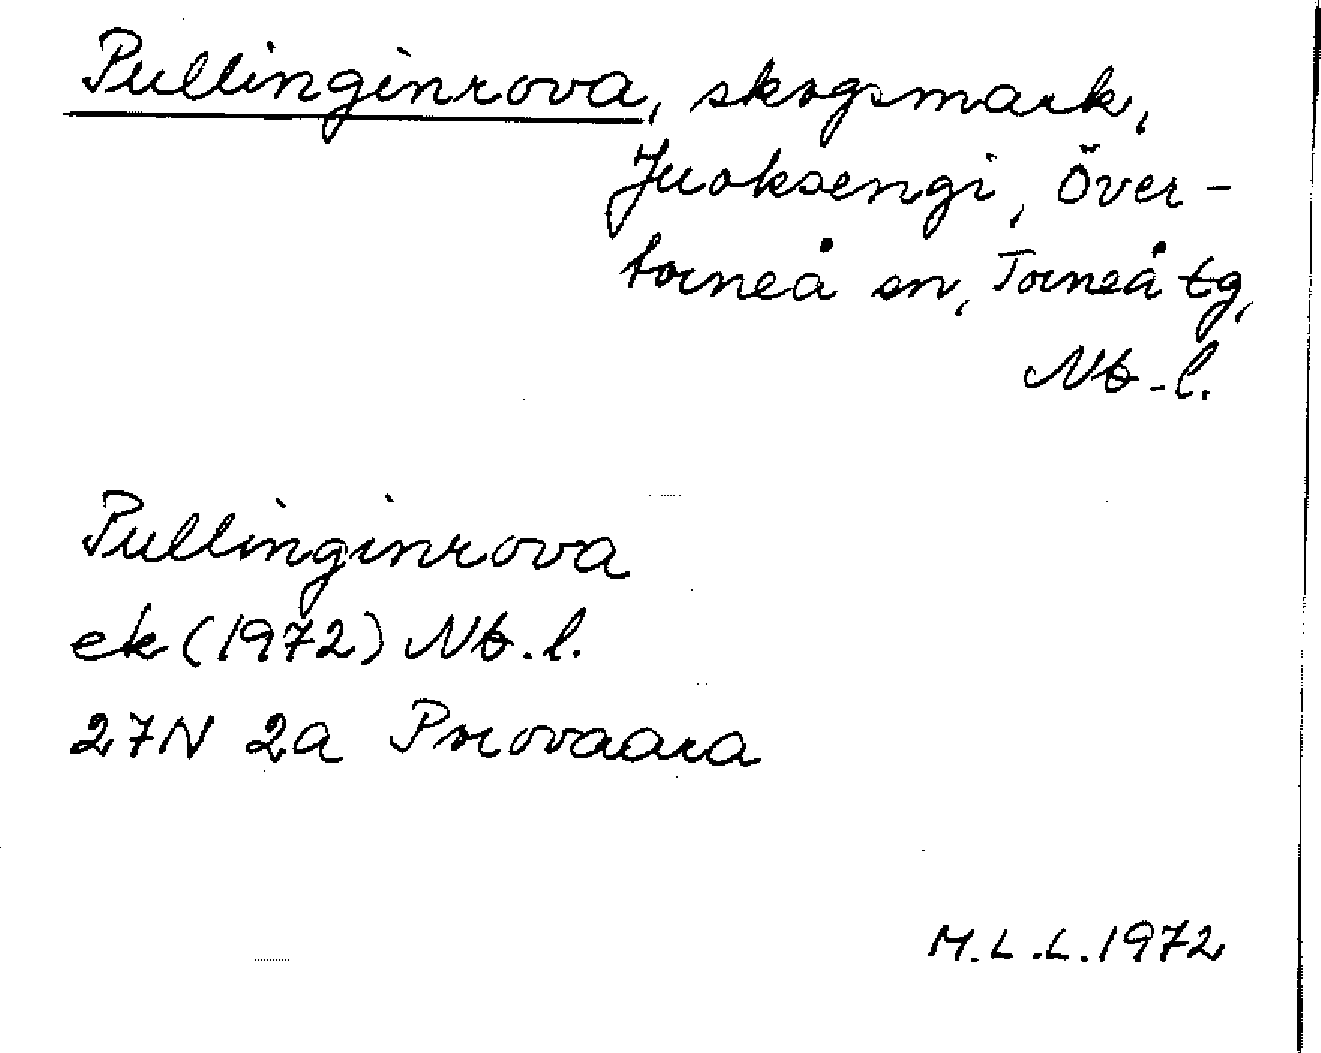 Pullinginrova, skogsmark,
Juoksengi, Över-
torneå sn, Torneå tg,
Nb-l.
Pullinginrova
ek (1972) Nb.l.
27N 2a Porovaara
M.L.L. 1972